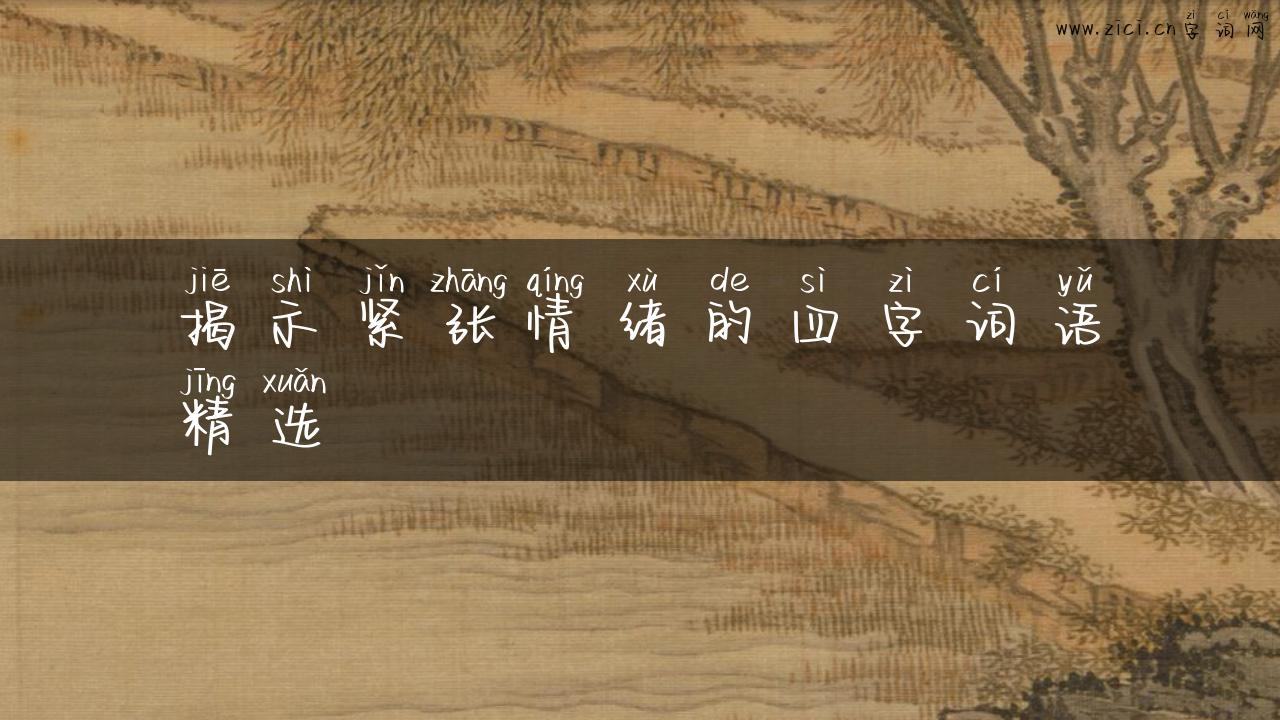 zì cí wǎng
www.zici.cn字词网
jiē shì jǐn zhāng qíng xù de sì zì cí yǔ
揭示紧张情绪的四字词语
jīng xuǎn
精选